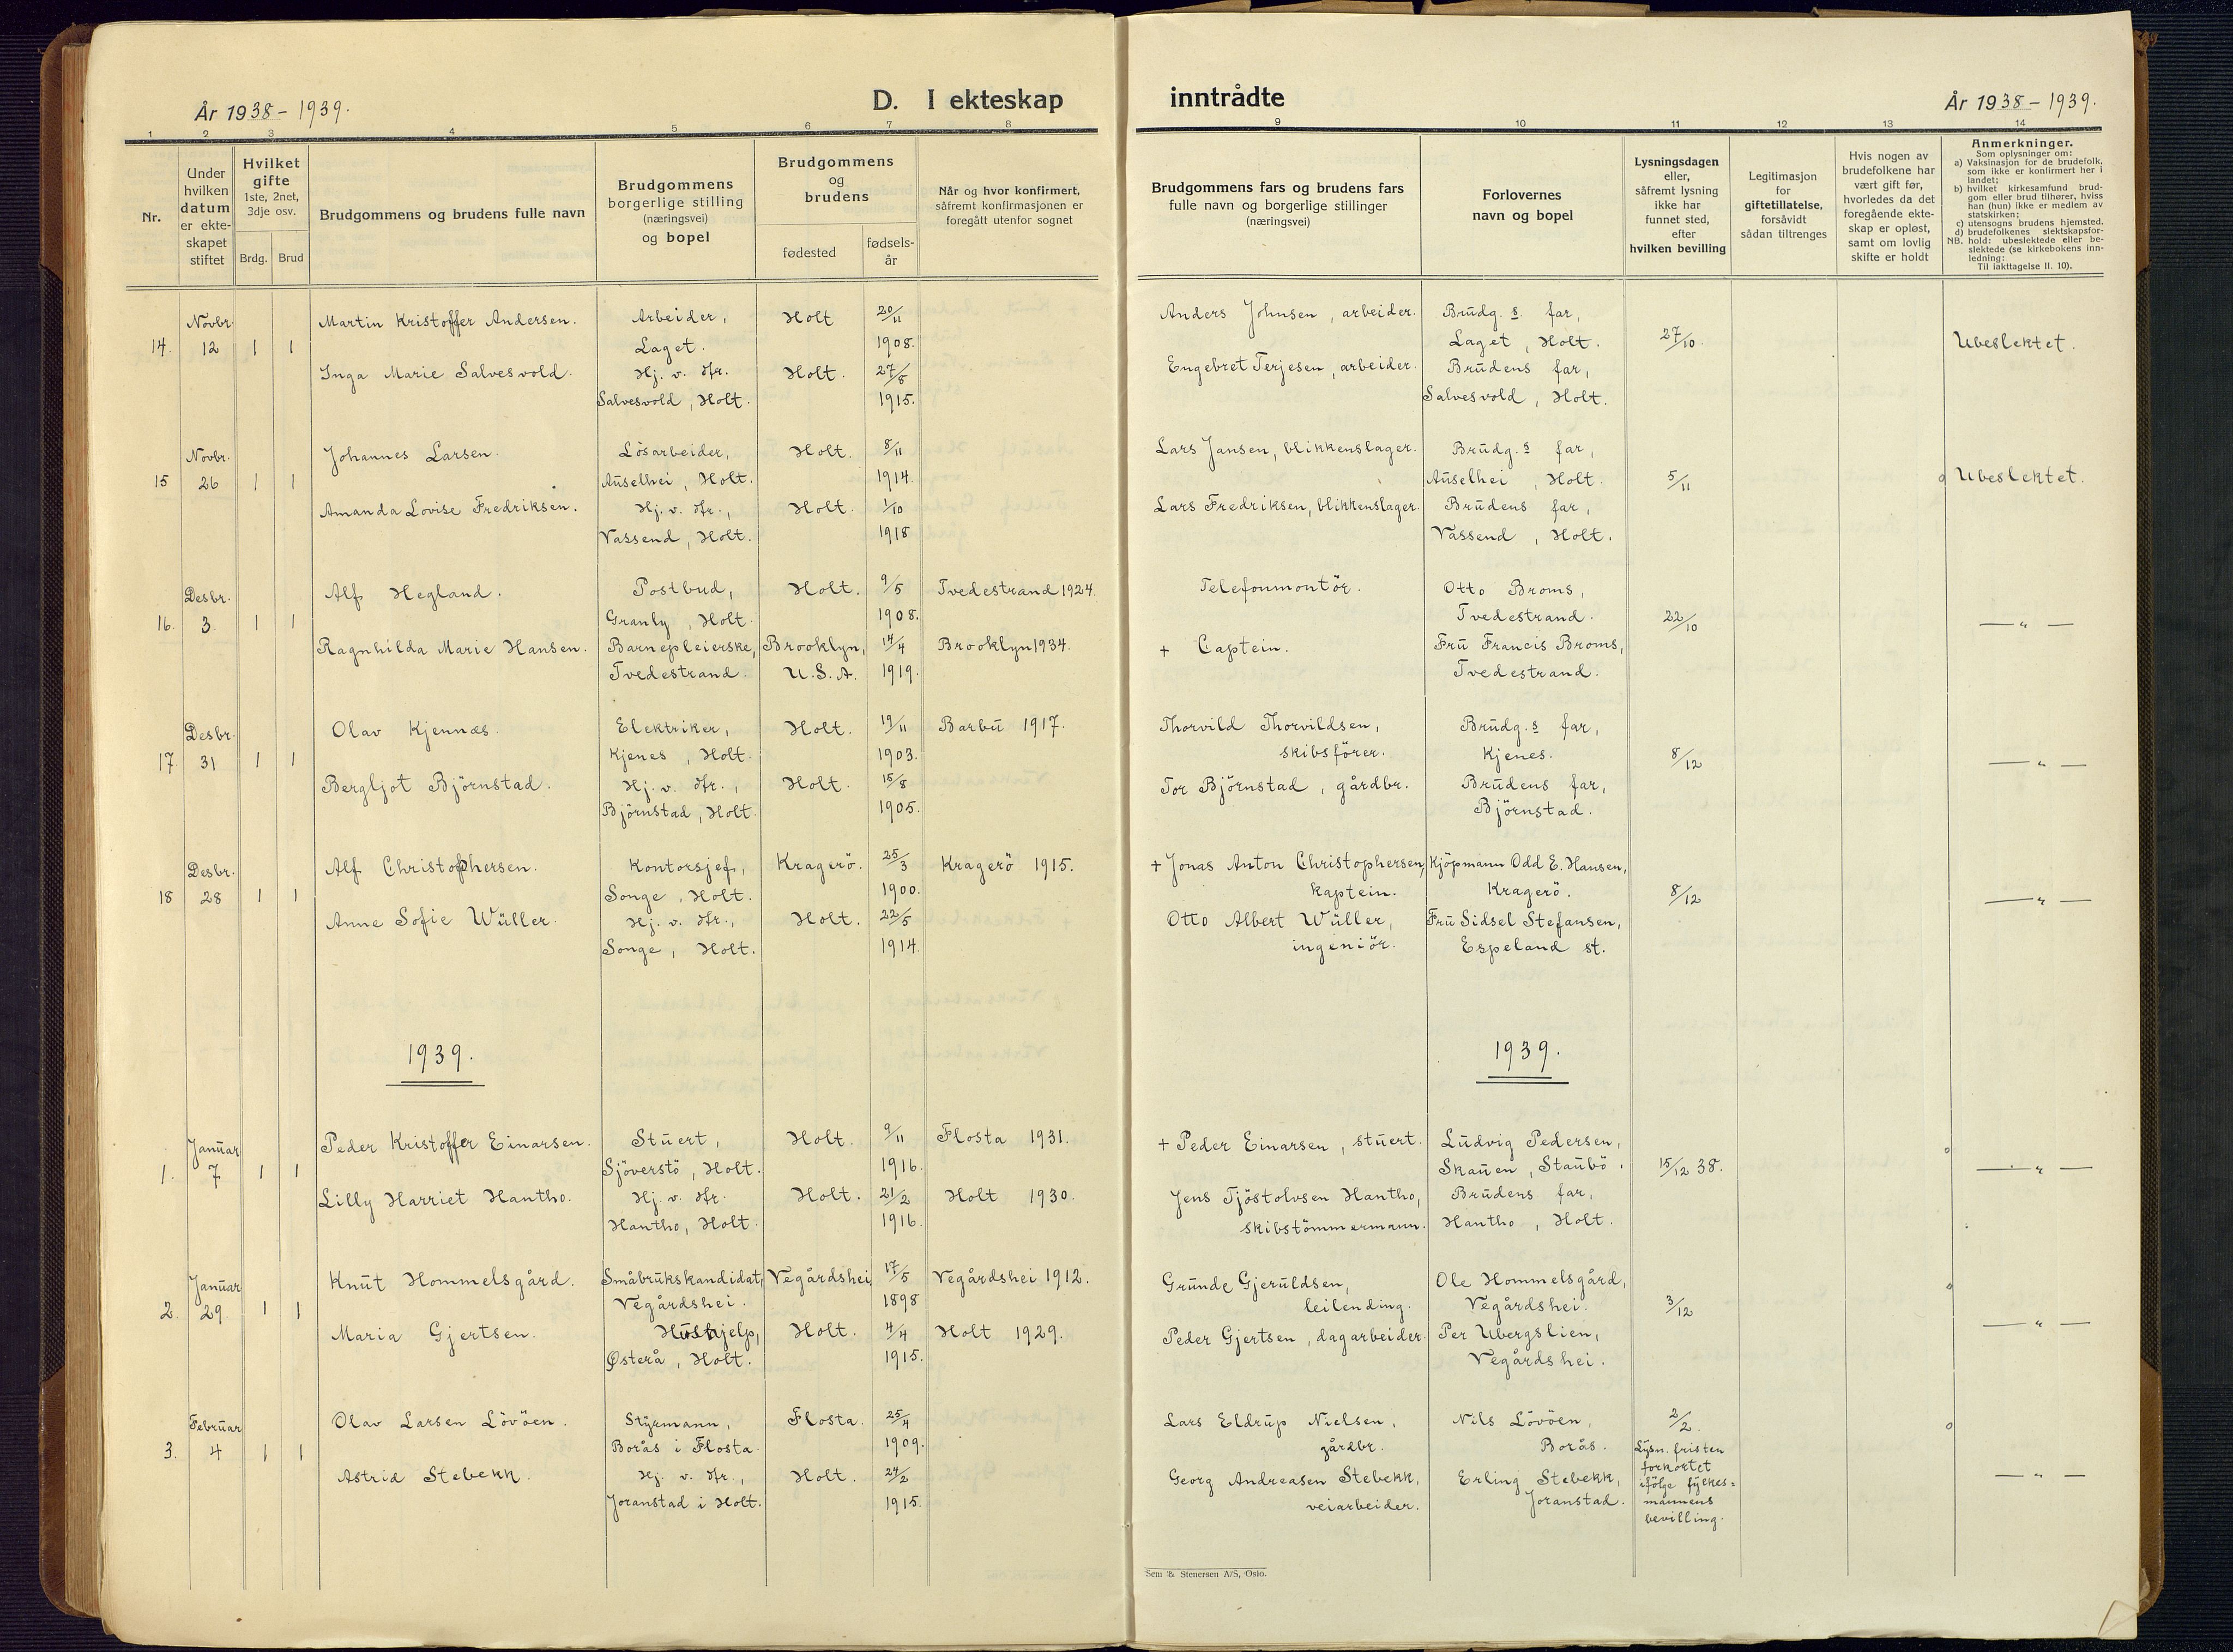 År 1938 - 1939.
D. I ekteskap
inntrådte
År 1938 - 1939.
1 2 3 4 5 6 7 8
9 10 11 12 13 14
Nr.
Under
hvilken
datum
er ekte-
skapet
stiftet
Hvilket
gifte
1ste, 2net,
3dje osv.
Brdg. Brud
Brudgommens og brudens fulle navn
Brudgommens
borgerlige stilling
(næringsvei)
og bopel
Brudgommens
og
brudens
fødested
fødsels-
år
Når og hvor konfirmert,
såfremt konfirmasjonen er
foregått utenfor sognet
Brudgommens fars og brudens fars
fulle navn og borgerlige stillinger
(næringsvei)
Forlovernes
navn og bopel
Lysningsdagen
eller,
såfremt lysning
ikke har
funnet sted,
efter
hvilken bevilling
Legitimasjon
for
giftetillatelse,
forsåvidt
sådan tiltrenges
Hvis nogen av
brudefolkene har
vært gift før,
hvorledes da det
foregående ekte-
skap er opløst,
samt om lovlig
skifte er holdt
Anmerkninger.
Som oplysninger om:
a) Vaksinasjon for de brudefolk,
som ikke er konfirmert her i
landet;
b) hvilket kirkesamfund brud-
gom eller brud tilhører, hviss
han (hun) ikke er medlem av
statskirken;
c) utensogns brudens hjemsted.
d) brudefolkenes slektskapsfor-
NB. hold: ubeslektede eller be-
slektede (se kirkebokens inn-
ledning:
Til iakttagelse II. 10).
14. Novbr. 12 1 1
Martin Kristoffer Andersen.
Arbeider,
Laget.
Holt
20/11
1908.
Inga Marie Salvesvold.
Hj. v. Hr.
Salvesvold, Holt.
Holt.
27/8
1915.
Anders Johnsen, arbeider.
Engebret Terjesen, arbeider.
Brudg.s far,
Laget, Holt.
Brudens far,
Salvesvold, Holt.
27/10.
Ubeslektet.
15 Novbr. 26 1 1
Johannes Larsen.
Lösarbeider,
Auselhei, Holt.
Holt.
8/11
1914.
Amanda Lovise Fredriksen.
Hj. v. Hr.,
Vassend, Holt.
Holt.
1/10
1918
Lars Jansen, blikkenslager.
Lars Fredriksen, blikkenslager.
Brudg.s far,
Auselhei, Holt.
Brudens far,
Vassend, Holt.
5/11
Ubeslektet.
16. Desbr. 3. 1 1
Alf Hegland.
Postbud,
Granly, Holt.
Holt.
9/5
1908.
Tvedestrand 1924.
Ragnhilda Marie Hansen.
Barnepleierske,
Tvedestrand.
Brooklyn,
U.S.A.
14/4
1919.
Brooklyn 1934.
Telefonmontör.
+ Captein.
Otto Broms,
Tvedestrand.
Fru Francis Broms,
Tvedestrand.
22/10
— " —
17. Desbr. 31 1 1
Olav Kjennæs.
Elektriker,
Kjenes, Holt.
Holt.
19/11
1903.
Barbu 1917.
Bergljot Björnstad.
Hj. v. Hr.,
Björnstad, Holt.
Holt.
15/8
1905.
Thorvild Thorvildsen,
skibsförer.
Tor Björnstad, gårdbr.
Brudg.s far,
Kjenes.
Brudens far,
Björnstad.
8/12
— " —
18 Desbr. 28 1 1
Alf Christophersen.
Kontorsjef,
Songe, Holt.
Kragerö.
25/3
1900.
Kragerö 1915.
Anne Sofie Wüller.
Hj. v. Hr.,
Songe, Holt.
Holt.
22/5
1914.
+ Jonas Anton Christophersen,
kaptein.
Otto Albert Wüller,
ingeniör.
Kjöpmann Odd E. Hansen,
Kragerö.
Fru Sidsel Stefansen,
Espeland st.
8/12
— " —
1939.
1939.
1. Januar 7 1 1
Peder Kristoffer Einarsen.
Stuert,
Sjöverstö, Holt.
Holt.
9/11
1916.
Flosta 1931.
Lilly Harriet Hantho.
Hj. v. Hr.
Hantho, Holt.
Holt.
21/2
1916.
Holt 1930.
+ Peder Einarsen, stuert.
Jens Tjöstolvsen Hantho,
skibstömmermann.
Ludvig Pedersen,
Skauen, Staubö.
Brudens far,
Hantho, Holt.
15/12 38.
— " —
2. Januar 29. 1 1
Knut Hommelsgård.
Småbrukskandidat,
Vegårdshei.
Vegårdshei.
17/5
1898
Vegårdshei 1912.
Maria Gjertsen.
Hushjelp,
Østerå, Holt.
Holt.
4/4
1915.
Holt 1929.
Grunde Gjeruldsen,
leilending.
Peder Gjertsen, dagarbeider.
Ole Hommelsgård,
Vegårdshei.
Per Ubergslien,
Vegårdshei.
3/12
— " —
3. Februar 4 1 1
Olav Larsen Lövöen.
Styrmann,
Borås i Flosta.
Flosta.
25/4
1909.
Astrid Stebekk.
Hj. v. Hr.,
Joranstad i Holt.
Holt.
24/2
1915.
Lars Eldrup Nielsen,
gårdbr.
Georg Andreasen Stebekk,
veiarbeider.
Nils Lövöen,
Borås.
Erling Stebekk,
Joranstad.
2/2.
Lysn. fristen
forkortet
ifölge fylkes=
mannens
bevilling.
— " —
Sem & Stenersen A/S, Oslo.